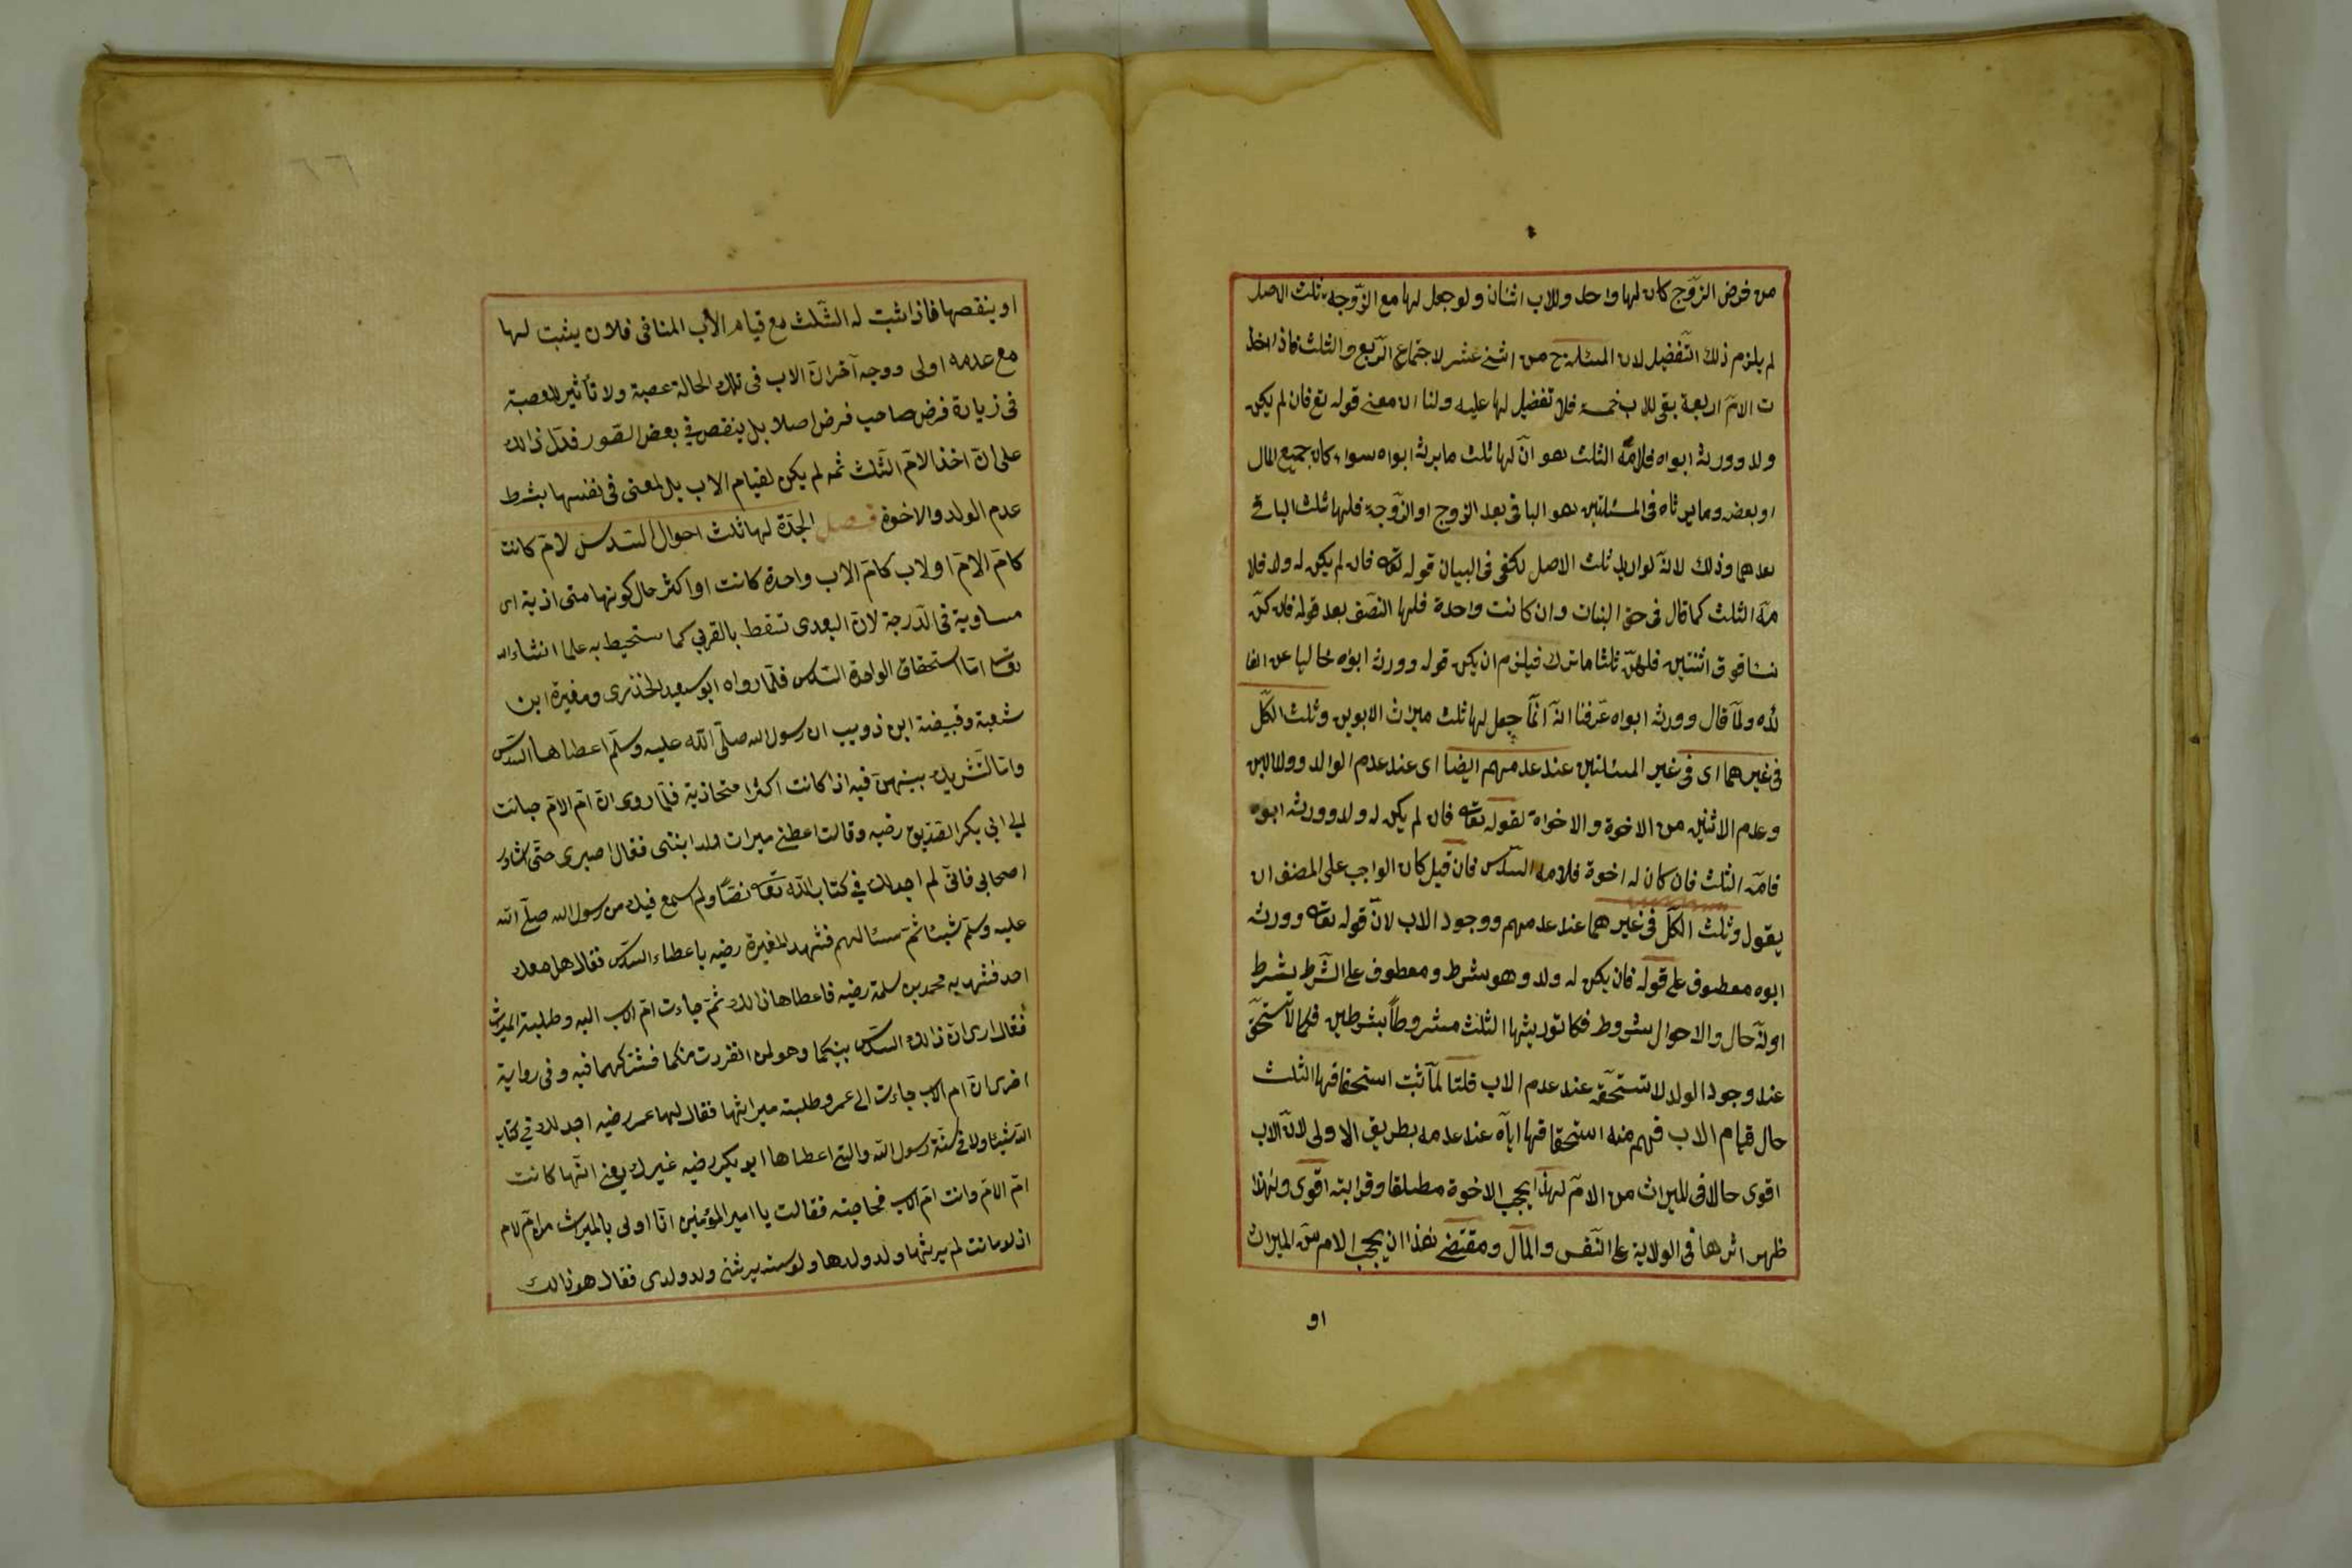 من فرض الزوج كان لها واحد وللاب اثنان ولو جعل لها مع الزوجة ثلث الاصل
لم يلزم ذلك التفضيل لان المسئلة ح من اثنى عشر لاجتماع الربع والثلث فاذا اخذ
ت الامّ اربعة بقى للاب خمسة فلا تفضيل لها عليه ولنا ان معنى قوله تع فان لم يكن
ولد وورثه ابواه فلامّه الثلث هو انّ لها ثلث ما يرثه ابواه سواء كان جميع المال
او بعضه وما يرثاه فى المسئلتين هو الباقى بعد الزوج او الزّوجة فلها ثلث الباقى
بعدهما وذلك لانّه لو اريد ثلث الاصل لكفى فى البيان قوله تعه فان لم يكن له ولد فلا
مّه الثلث كما قال فى حق البنات وان كانت واحدة فلها النصف بعد قوله فان كنّ
نسا فوق اثنتين فلهنّ ثلثا ما ترك فيلزم ان يكون قوله وورثه ابوه خاليا عن الفا
ئده ولمّا قال وورثه ابواه عرفنا انّه انّما جعل لها ثلث ميراث الابوين وثلث الكلّ
فى غيرهما اى فى غير المسئلتين عند عدمهم ايضا اى عند عدم الوالد وولد الابن
وعدم الاثنين من الاخوة والاخواة لقوله تعه فان لم يكن له ولد وورثه ابوه
فامّه الثلث فان كان له اخوة فلامه السّدس فان قيل كان الواجب على المصنف ان
يقول وثلث الكلّ فى غيرهما عند عدمهم ووجود الاب لانّ قوله تعه وورثه
ابوه معطوف على قوله فان يكن له ولد وهو شرط ومعطوف على الشّرط بشرط
اولّه حال والاحوال شروط فكا توريثها الثلث مشروطاً بشرطين فكما لا تستحقّ
عند وجود الولد لا تستحقّه عند عدم الاب قلنا لمّا ثبت استحقاقها الثلث
حال قيام الاب فهم منه استحقاقها ايّاه عند عدمه بطريق الاولى لانّ الاب
اقوى حالا فى الميراث من الامّ لهذا يحجب الاخوة مطلقا وقرابته اقوى ولهذا
ظهر اثرها فى الولاية على النّفس والمال ومقتضى هذا ان يحجب الام من الميراث
او
او ينقصها فاذا ثبت له الثّلث مع قيام الأب المنافى فلان يثبت لها
مع عدمه اولى ووجه آخر انّ الاب فى تلك الحالة عصبة ولا تأثير للعصبة
فى زيادة فرض صاحب فرض اصلا بل ينقص فى بعض الصّور فدّل ذالك
على انّ اخذ الامّ الثّلث ثمه لم يكن لقيام الاب بل لمعنى فى نفسها بشرط
عدم الولد والاخوة فصل الجدّة لها ثلث احوال السّدس لامّ كانت
كامّ الامّ او لاب كامّ الاب واحدة كانت او اكثر حال كونها متى اذية اى
مساوية فى الدّرجة لانّ البعدى تسقط بالقربى كما ستحيط به علما انشاء الله
تعه امّا استحقاق الواحدة السّدس فلما رواه ابو سعيد الخذرى ومغيرة ابن
شعبة وقبيضة ابن ذويب ان رسول الله صلّى الله عليه وسلّم اعطاها السّدس
وامّا التّشريك بينهنّ فيه اذا كانت اكثرا متحاذية فلما روى انّ امّ الامّ جائت
الى ابى بكر الصّديق رضيه وقالت اعطنى ميرات ولد ابنتى فقال اصبرى حتّى اشاور
اصحابى فانّى لم اجد لك فى كتاب الله تعه نصّاً ولم اسمع فيك من رسول الله صلّى الله
عليه وسلّم شيئا ثمّ سئالهم فشهد المغيرة رضيه باعطاء السّدّس فقال هل معك
احد فشهد به محمد بن سلمة رضيه فاعطاها ذالك ثمّ جاءت امّ الاب اليه وطلبة الميراث
فقال ارى انّ ذالك السّدّس بينكما وهو لمن انفردت منكما فشتركهما فيه وفى رواية
اخرى انّ ام الاب جاءت الى عمر وطلبته ميراثها فقال لهما عمر رضيه اجد لك فى كتاب
الله شيئا ولا فى سنّة رسول الله والتى اعطاها ابو بكر رضيه غيرك يعنى انّها كانت
امّ الامّ وانت امّ الاب فحاجته فقالت يا امير المؤمنين انّا اولى بالميراث من امّ لام
اذ لو ماتت لم يرثها ولد ولدها ولو مته يرثنى ولد ولدى فقال هو ذالك